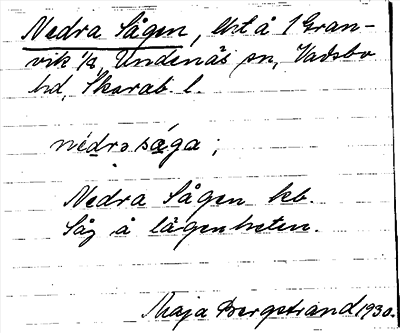 Nedra Sågen, lht å 1 Gran-
vik 1/2, Undenäs sn, Vadsbo
hd, Skarab. l.
nèdrə såga;
Nedra Sågen kb.
Såg å lägenheten.
Maja Bergstrand 1930.